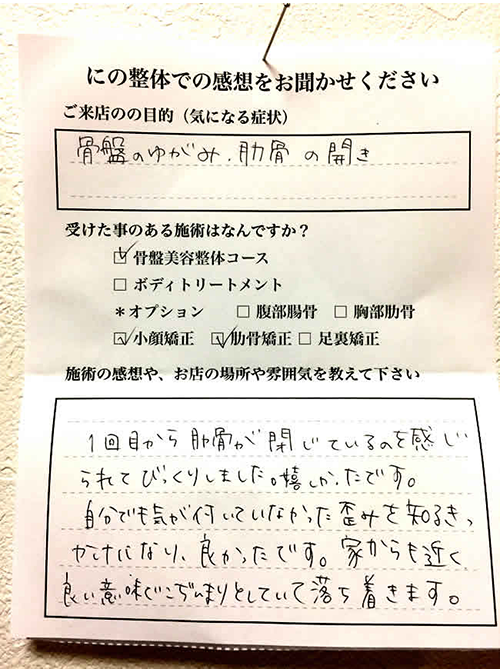 にの整体での感想をお聞かせください
ご来店のの目的（気になる症状）
骨盤のゆがみ．肋骨の開き
受けた事のある施術はなんですか？
☑ 骨盤美容整体コース
□ ボディトリートメント
＊オプション □ 腹部腸骨 □ 胸部肋骨
☑ 小顔矯正 ☑ 肋骨矯正 □ 足裏矯正
施術の感想や、お店の場所や雰囲気を教えて下さい
1回目から肋骨が閉じているのを感じ
られてびっくりしました。嬉しかったです。
自分でも気が付いていなかった歪みを知るきっ
かけになり、良かったです。家からも近く
良い意味でこぢんまりとしていて落ち着きます。